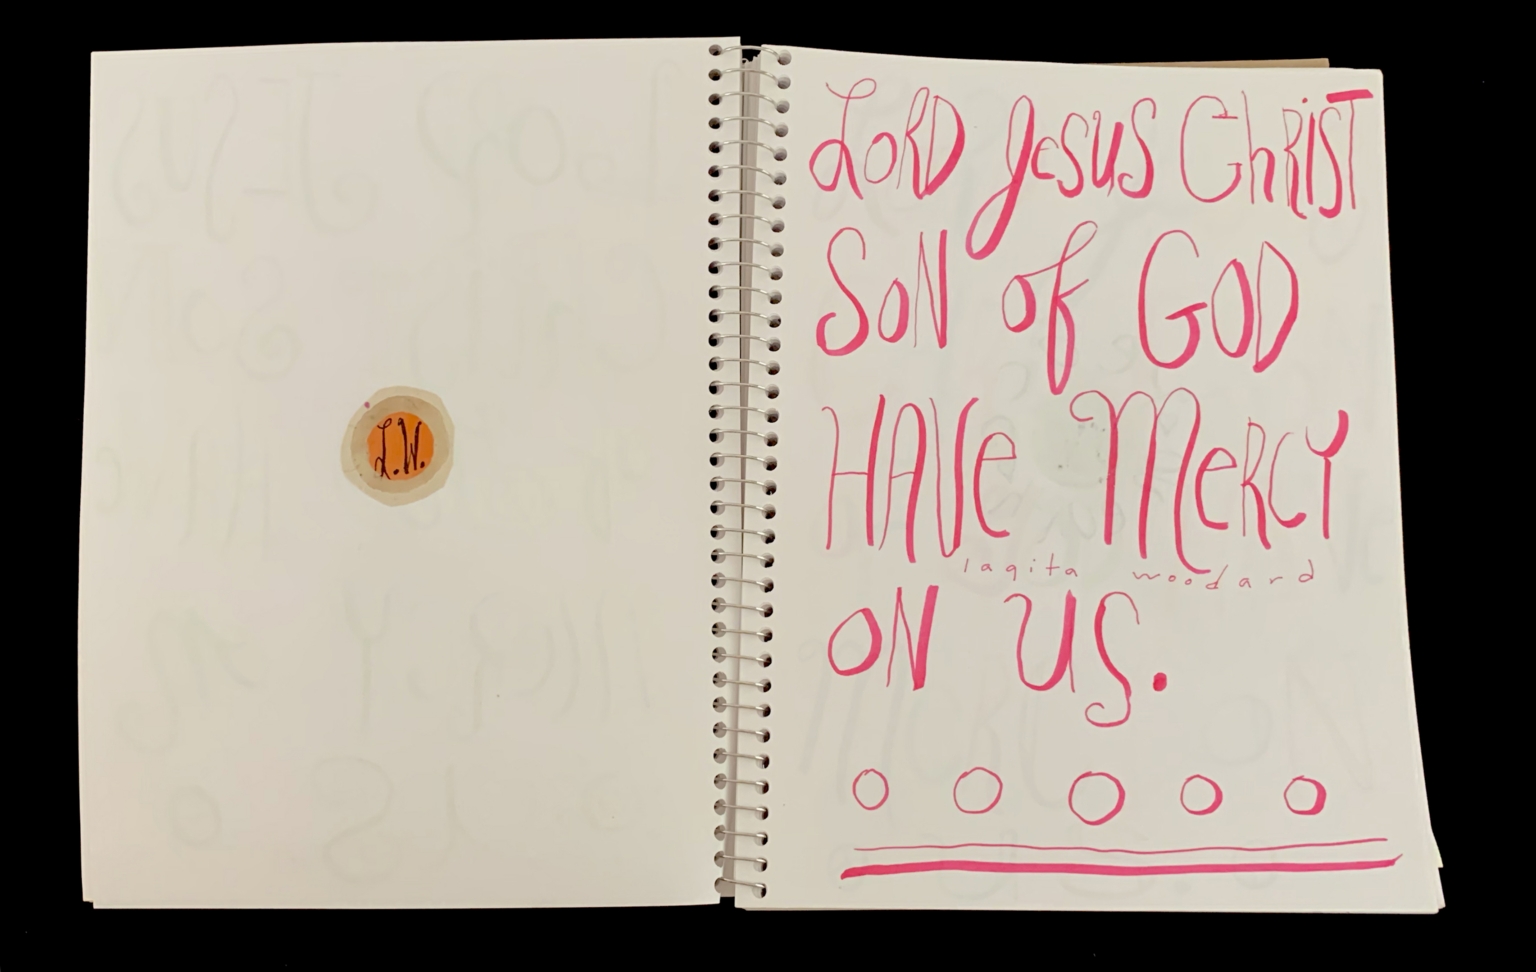 L.W.
LORD JeSUS ChRiST
SoN of GOD
HAVe MeRCY
laqita woodard
ON US.